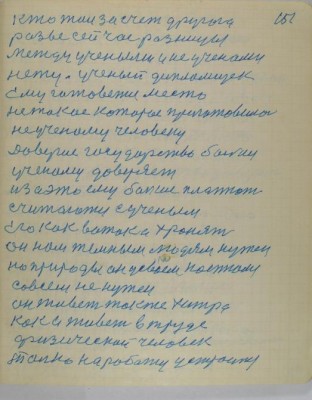 151
кто тои за счет другога
разве сейчас разницы
между учеными и не ученами
нету. ученый дипломщек
ему готовети место
не такое которое приготовила
не ученому человеку
доверие государство болши
ученому доверяет
и за это ему больше платют
считают с ученым
его какватока хронят
он нам темным людям нужен
но природы он совсем
совсем не нужен
он живет также хитро
как и живет в труде
физический человек
толко на работу